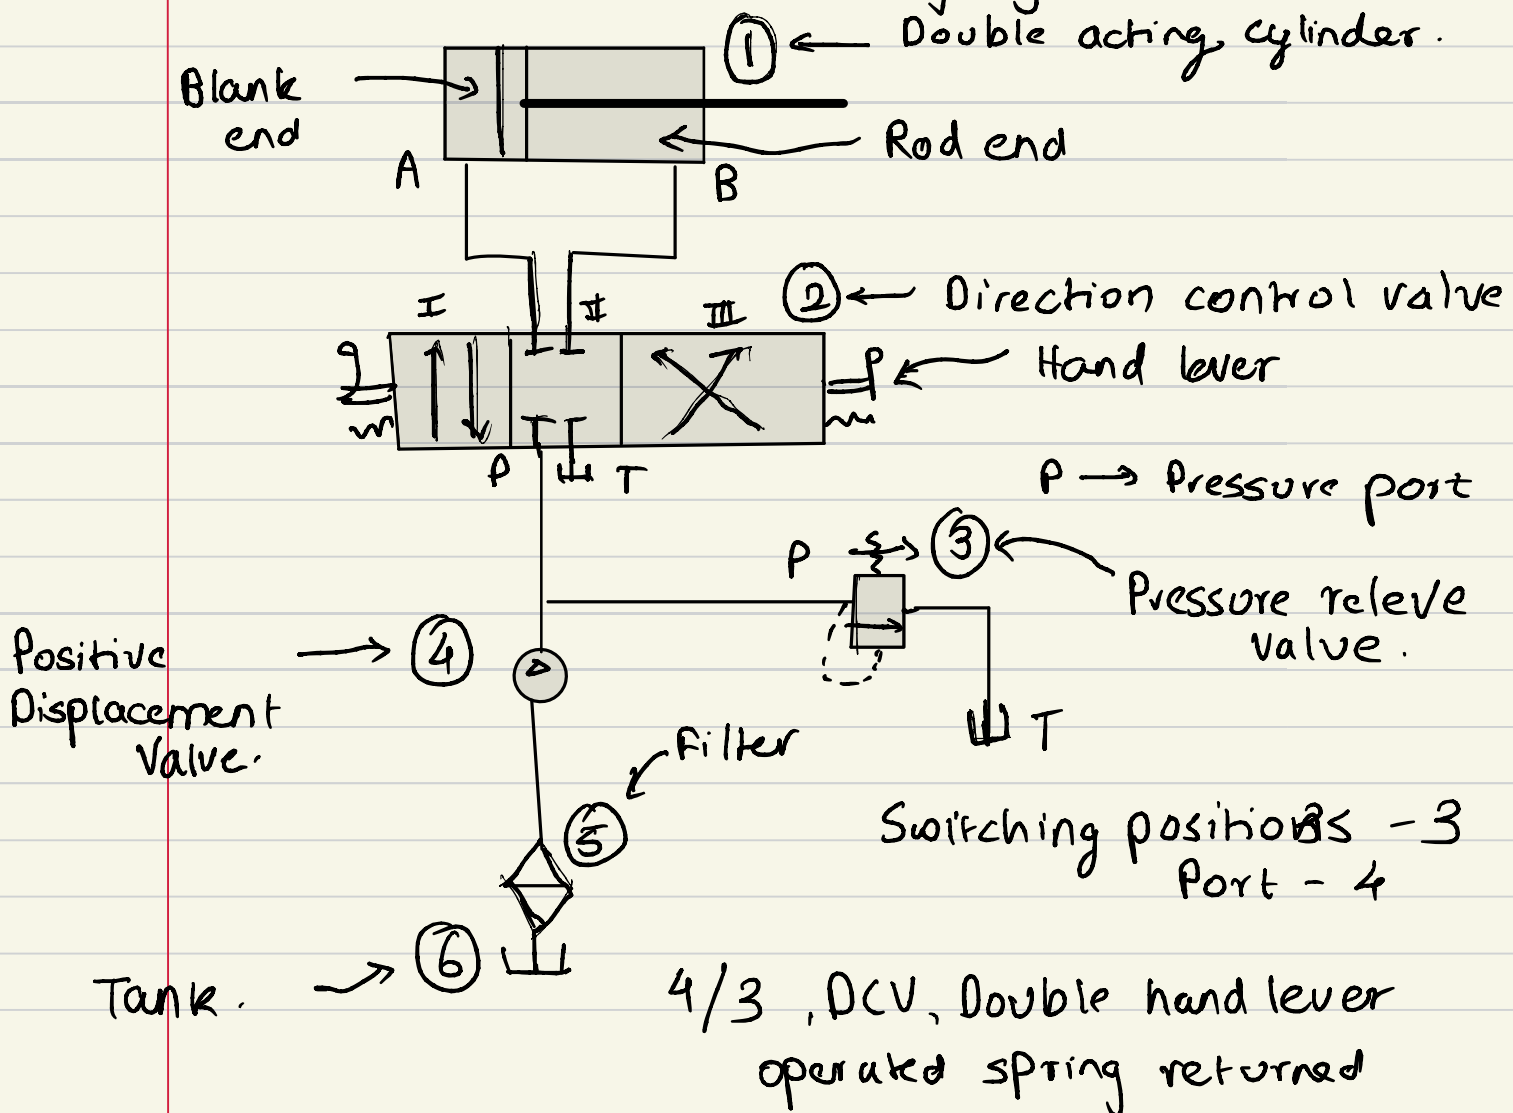 ① ← Double acting cylinder.
Blank
end
Rod end
A
B
I
II
III
② ← Direction control valve
Hand lever
P
T
P → Pressure port
P
③
Pressure releve
valve.
Positive
Displacement
Valve.
→ ④
T
Filter
⑤
Switching positions - 3
Port - 4
Tank.
→ ⑥
4/3 , DCV, Double hand lever
operated spring returned